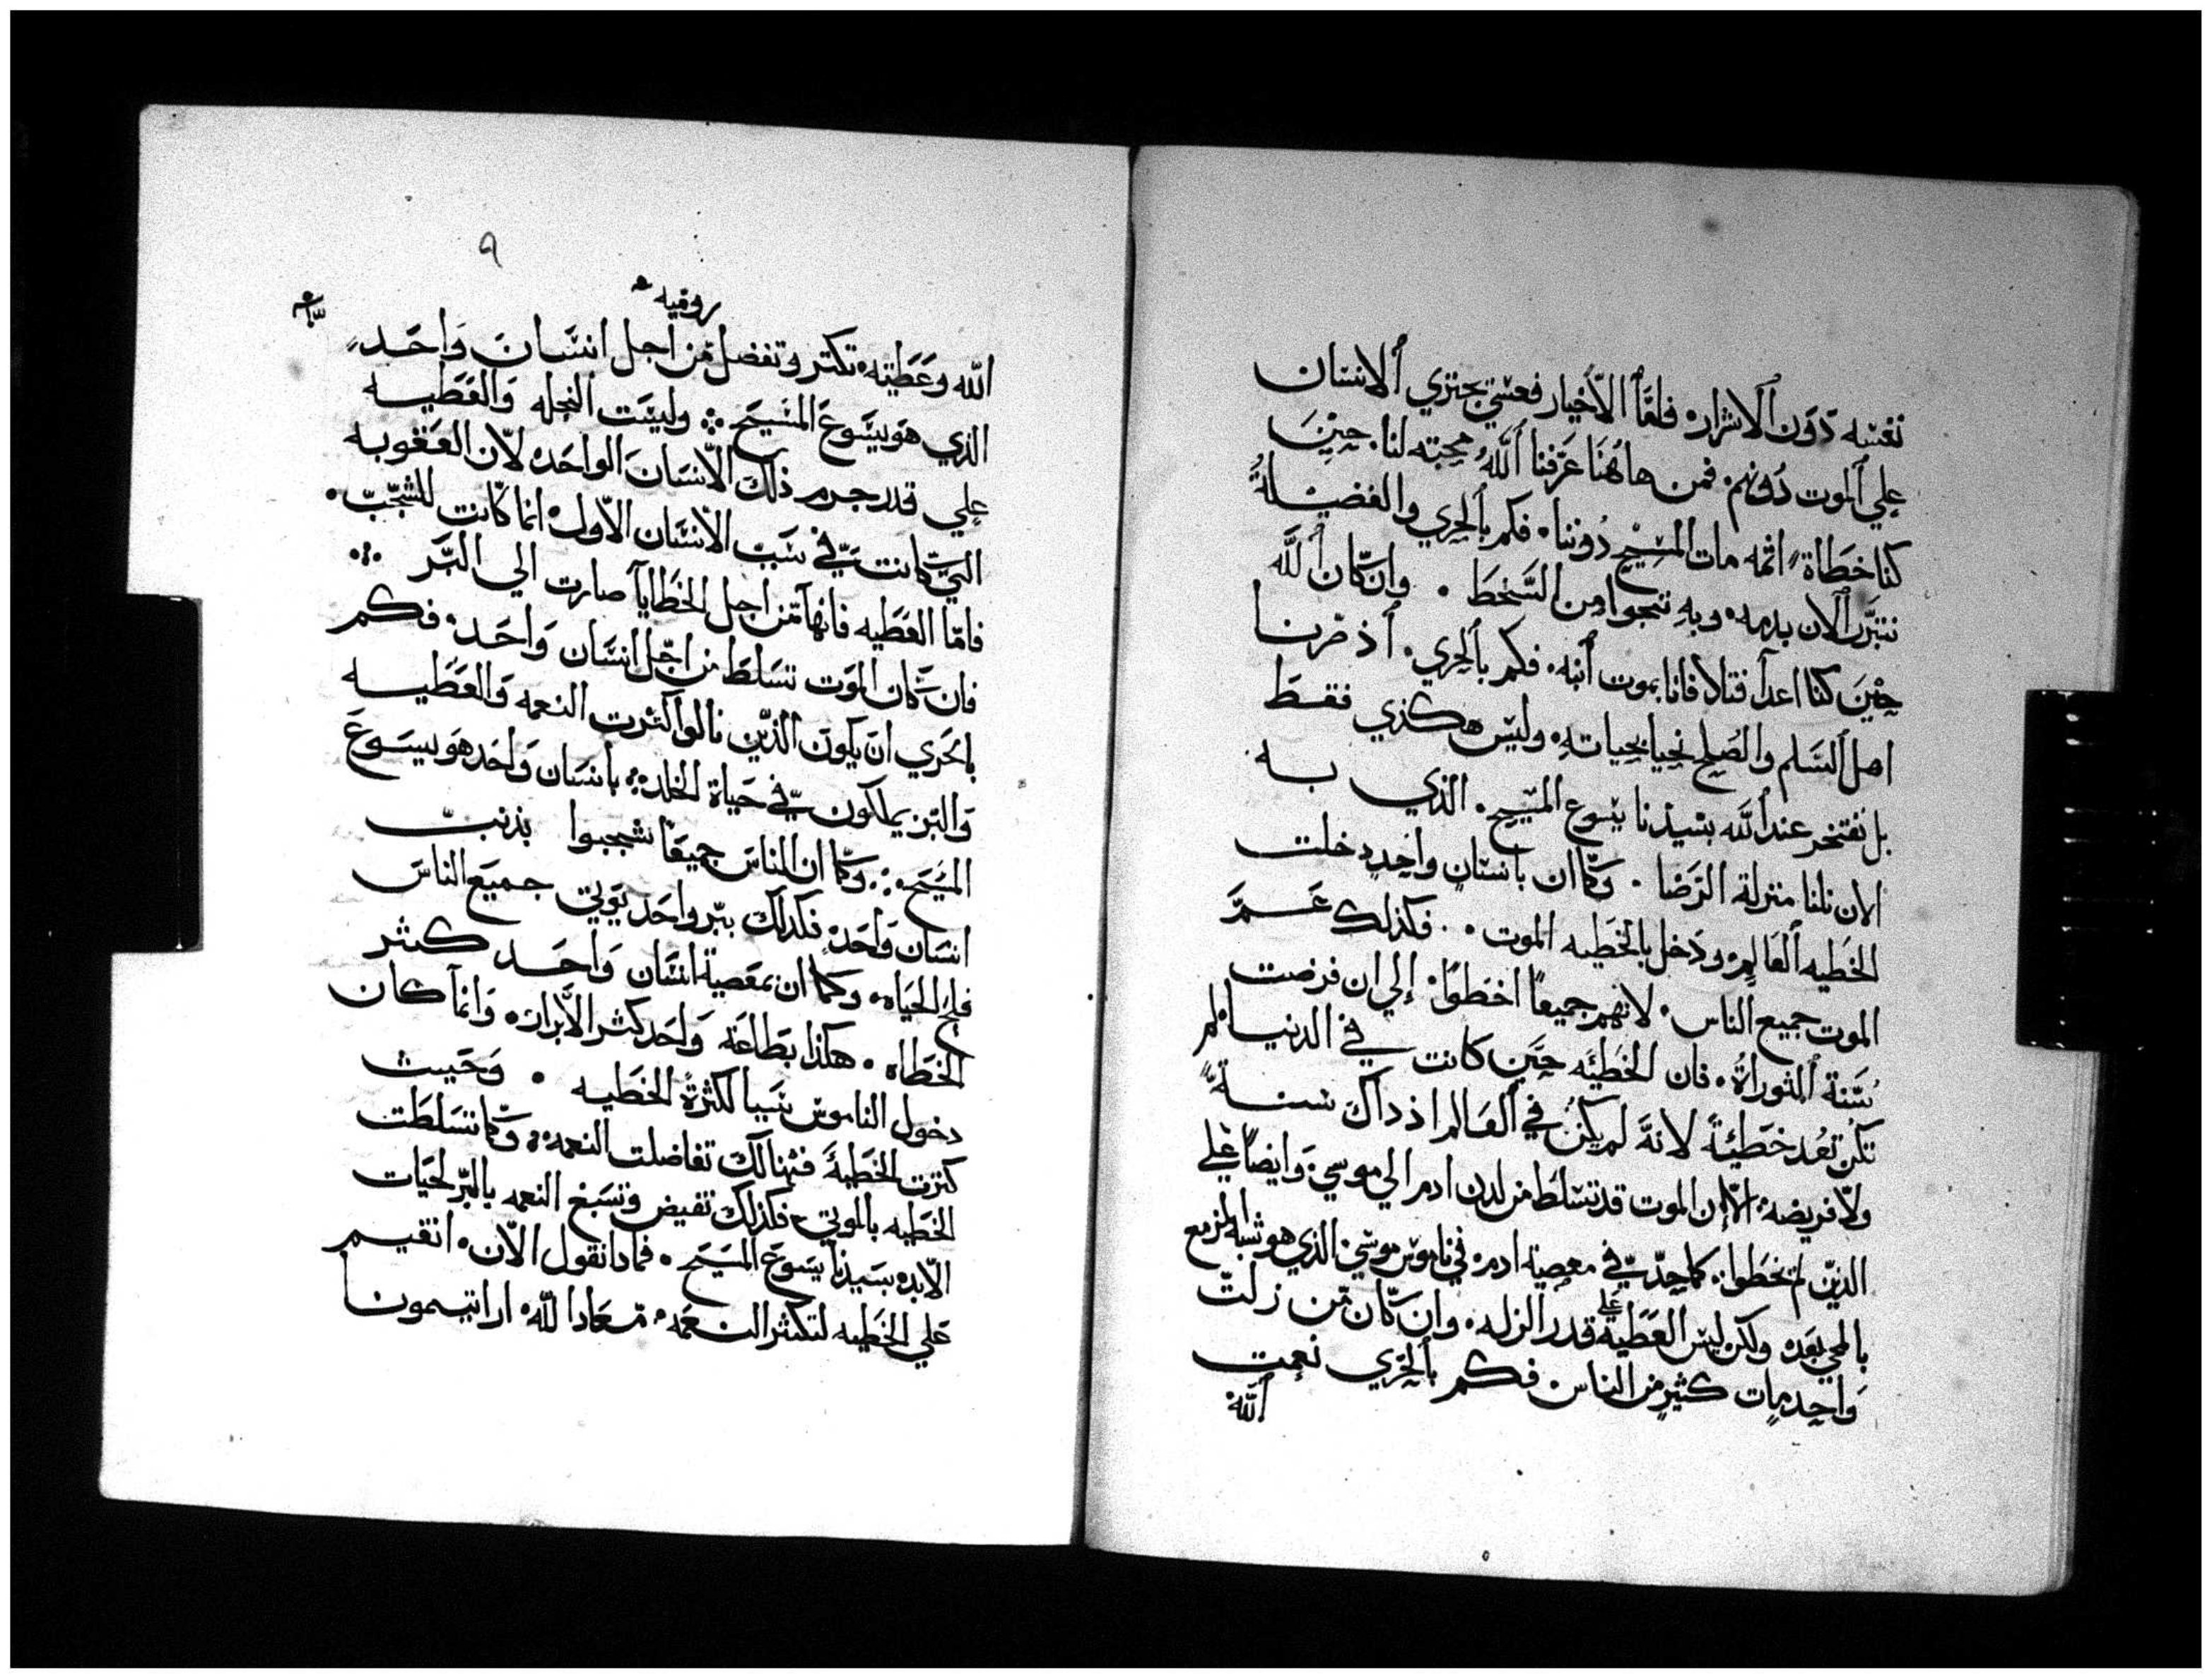 نفسه دون الاشرار. فاما الاخيار فعسي يجتري الانسان
علي الموت دونهم. فمن هاهنا عرفنا الله محبته لنا. حين
كنا خطاة اثمه مات المسيح دوننا. فكم بالحري والفضيلة
نتبرر الان بدمه. وبه ننجوا من السخط. وان كان الله
حين كنا اعدا فتلافانا بموت ابنه. فكم بالحري. اذ صرنا
اهل السلم والصلح نحيا بحياته. وليس هكذي فقط
بل نفتخر عند الله بسيدنا يسوع المسيح. الذي به
الان نلنا منزلة الرضا. وكما ان بانسان واحد دخلت
الخطيه العالم. ودخل بالخطيه الموت. فكذلك عم
الموت جميع الناس. لانهم جميعا اخطوا. الي ان فرضت
سنة التوراة. فان الخطيئه حين كانت في الدنيا لم
تكن تعد خطيئة لانه لم يكن في العالم اذ ذاك سنة
ولا فريضه. الا ان الموت قد تسلط من لدن ادم الي موسي. وايضا علي
الذين لم يخطوا. كما حد في معصية ادم. في ناموس موسي. الذي هو شبه المزمع
بالمجي بعده ولكن ليس العطيه علي قدر الزله. وان كان من زلت
واحد مات كثير من الناس فكم بالحري نعمت
الله
٩
روميه
الله وعطيته. تكتر وتفضل من اجل انسان واحد
الذي هو يسوع المسيح. وليست النحله والعطيه
علي قدر جرم ذلك الانسان الواحد. لان العقوبه
التي كانت في سبب الانسان الاول. انما كانت للشجب.
فاما العطيه فانها من اجل الخطايا صارت الي البر
فان كان الموت تسلط من اجل انسان واحد. فكم
بالحري ان يكون الذين نالوا اكثرت النعمه والعطيه
والبر يملكون في حياة الخلد. بانسان واحد هو يسوع
المسيح. وكما ان الناس جميعا شجبوا بذنب
انسان واحد. فكذلك ببر واحد يوتي جميع الناس
فلج الحياه. وكما ان بمعصية انسان واحد كثر
الخطاه. هكذا بطاعة واحد كثر الابرار. وانما كان
دخول الناموس سببا لكثرة الخطيه. وحيث
كترت الخطية فهنالك تفاضلت النعمه. وكما تسلطت
الخطيه بالموت. فكذلك تفيض وتسبغ النعمه بالبر لحيات
الابده بسيدنا يسوع المسيح. فمادا نقول الان. انقيم
علي الخطيه لتكثر النعمه. معادا لله. ارايتمونا